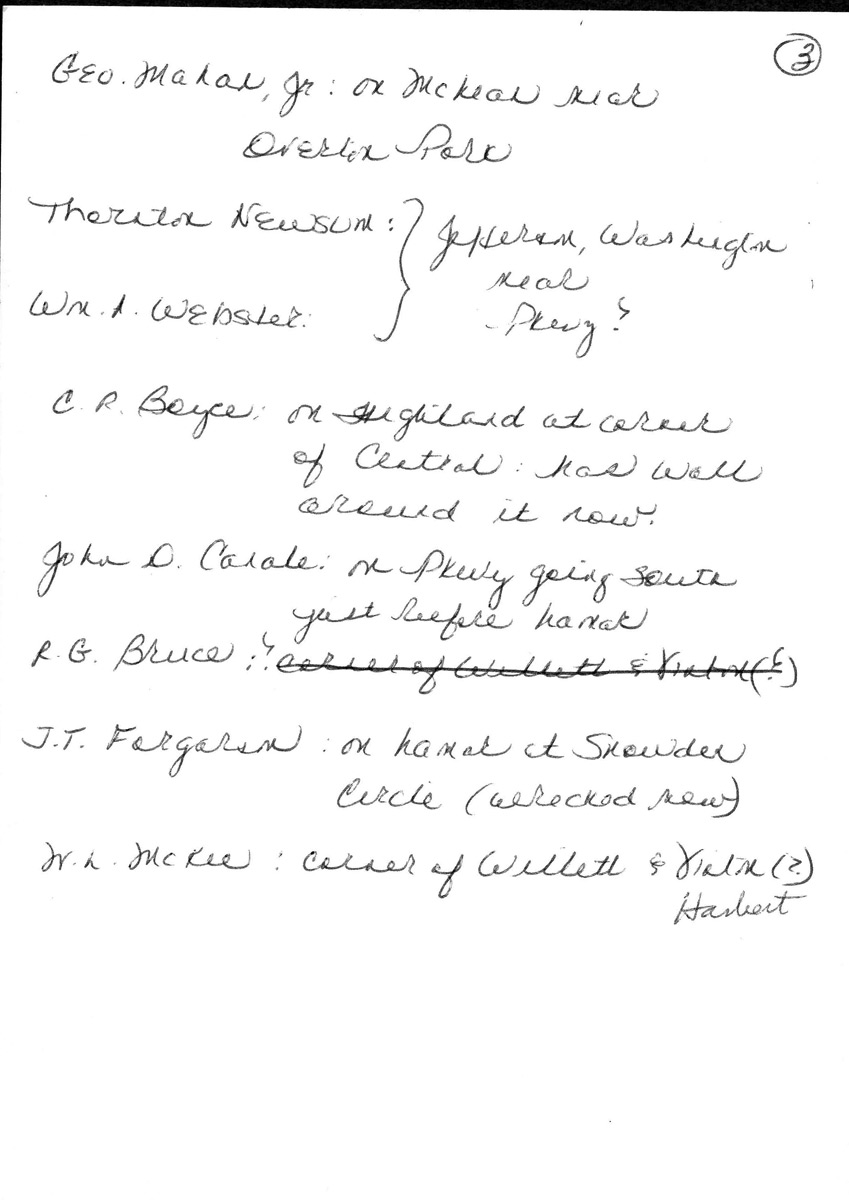 3
Geo. Mahan, Jr: on McLean near
Overton Park
Thornton Newsum: } Jefferson, Washington
near
Wm. A. Webster: Pkwy?
C. R. Boyce: on Highland at corner
of Central: has wall
around it now.
John D. Canale: on Pkwy going South
just before Lamar
R. G. Bruce:? corner of Willett & Vinton(?)
J.T. Fargason: on Lamar at Snowden
Circle (wrecked now)
W. L. McKee: corner of Willett & Vinton (?)
Harbert